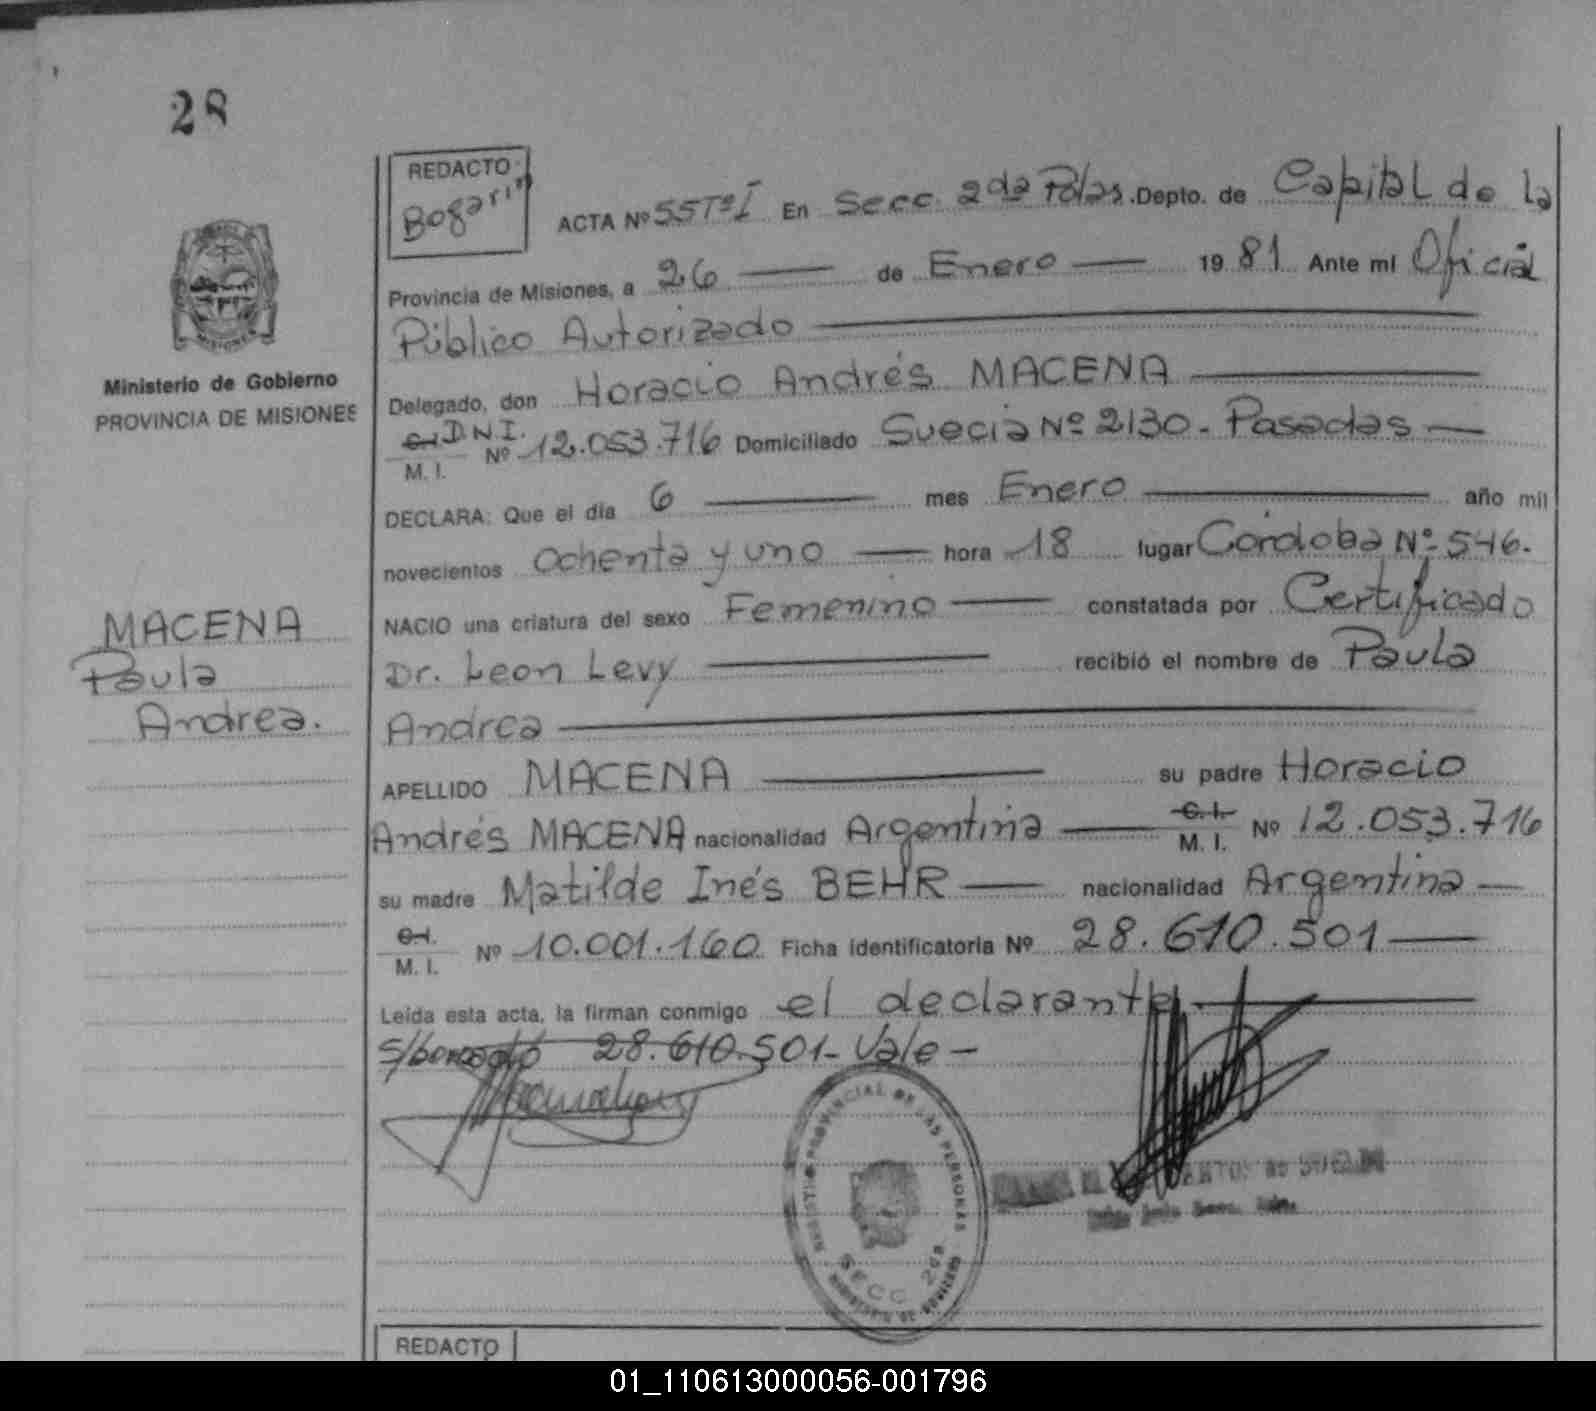 28
REDACTO
Bogarin
ACTA Nº 55 Tº I En Secc. 2da Pdas. Depto. de Capital de la
Provincia de Misiones, a 26 de Enero 1981 Ante mi Oficial
Público Autorizado
Delegado, don Horacio Andrés MACENA
C.I. D.N.I.
M. I. Nº 12.053.716 Domiciliado Suecia Nº 2130 - Posadas
DECLARA: Que el día 6 mes Enero año mil
novecientos Ochenta y uno hora 18 lugar Córdoba Nº 546.
NACIO una criatura del sexo Femenino constatada por Certificado
Dr. Leon Levy recibió el nombre de Paula
Andrea
APELLIDO MACENA su padre Horacio
Andrés MACENA nacionalidad Argentina C.I. M. I. Nº 12.053.716
su madre Matilde Inés BEHR nacionalidad Argentina
C.I. M. I. Nº 10.001.160 Ficha identificatoria Nº 28.610.501
Leída esta acta, la firman conmigo el declarante
s/borrado 28.610.501 - Vale -
Ministerio de Gobierno
PROVINCIA DE MISIONES
MISIONES
MACENA
Paula
Andrea.
REGISTRO PROVINCIAL DE LAS PERSONAS
SECC 2da
MINISTERIO DE GOBIERNO
REDACTO
01_110613000056-001796